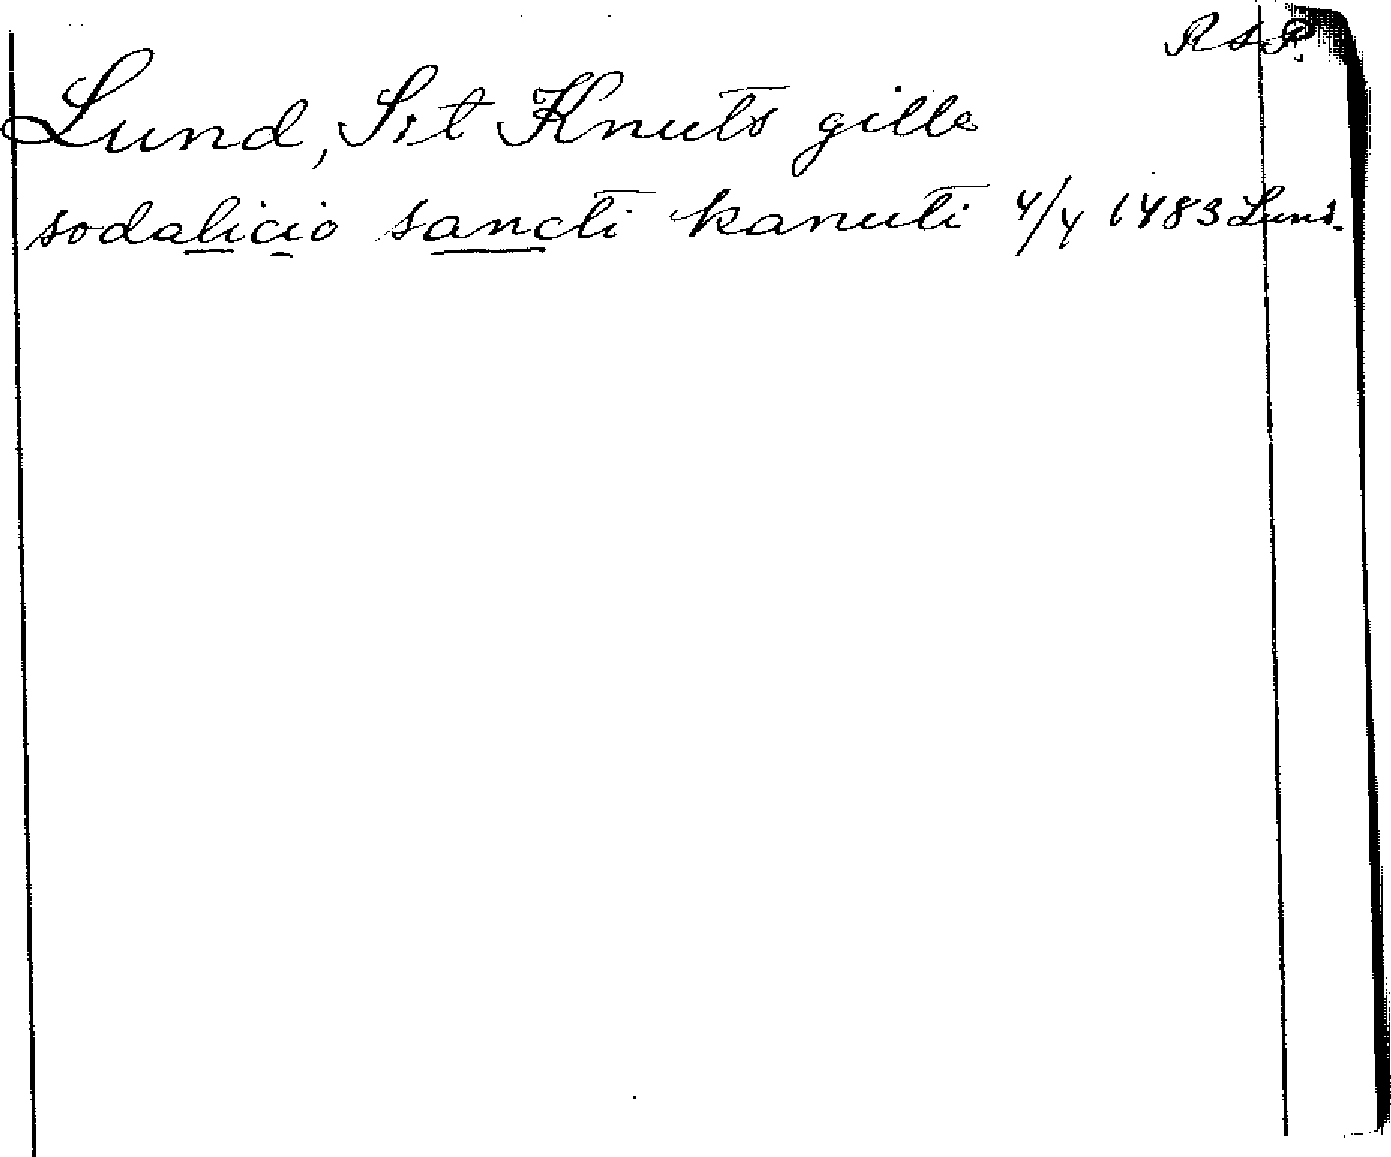 RAP.
Lund, S:t Knuts gille
sodalicio sancti kanuti 4/4 1483 Lund.